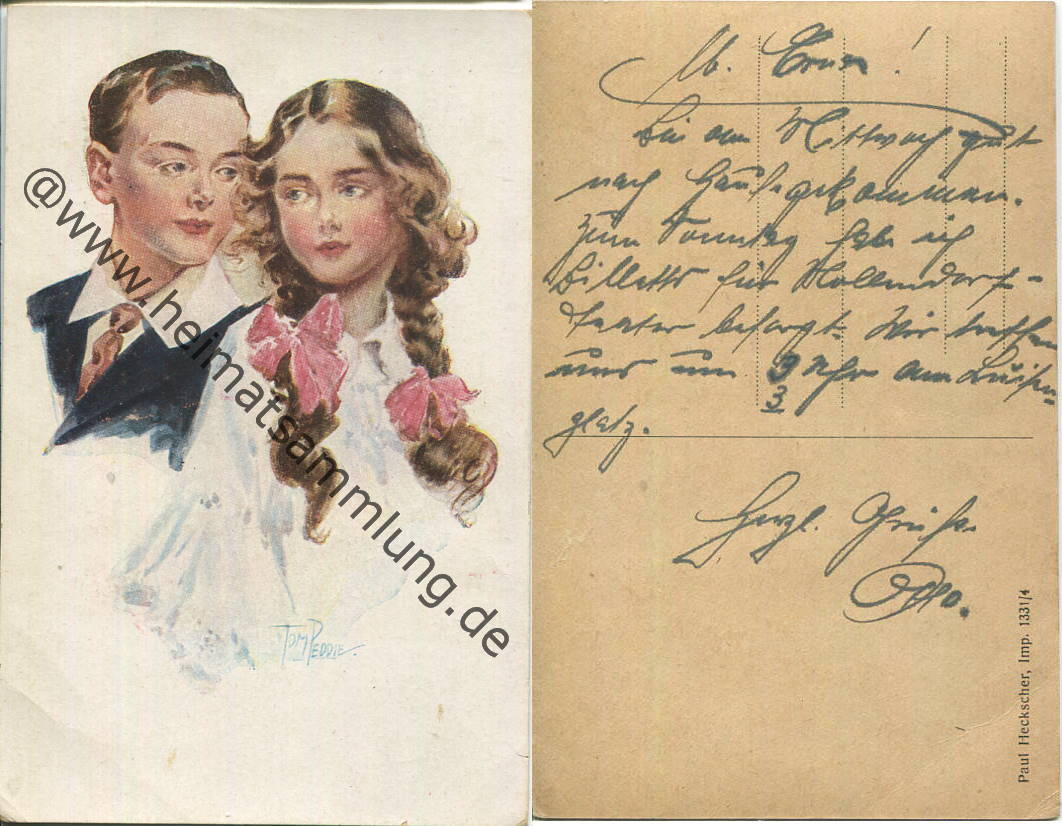 @www.heimatsammlung.de
TOM PEDDIE.
Lb. Erna!
Bin am Mittwoch gut
nach Hause gekommen.
Zum Sonntag habe ich
Billetts für Nollendorf-
teater besorgt. Wir treffen
uns um 3 Uhr am Luisen-
3
platz.
Herzl. Grüße
Otto.
Paul Heckscher, Imp. 1331/4